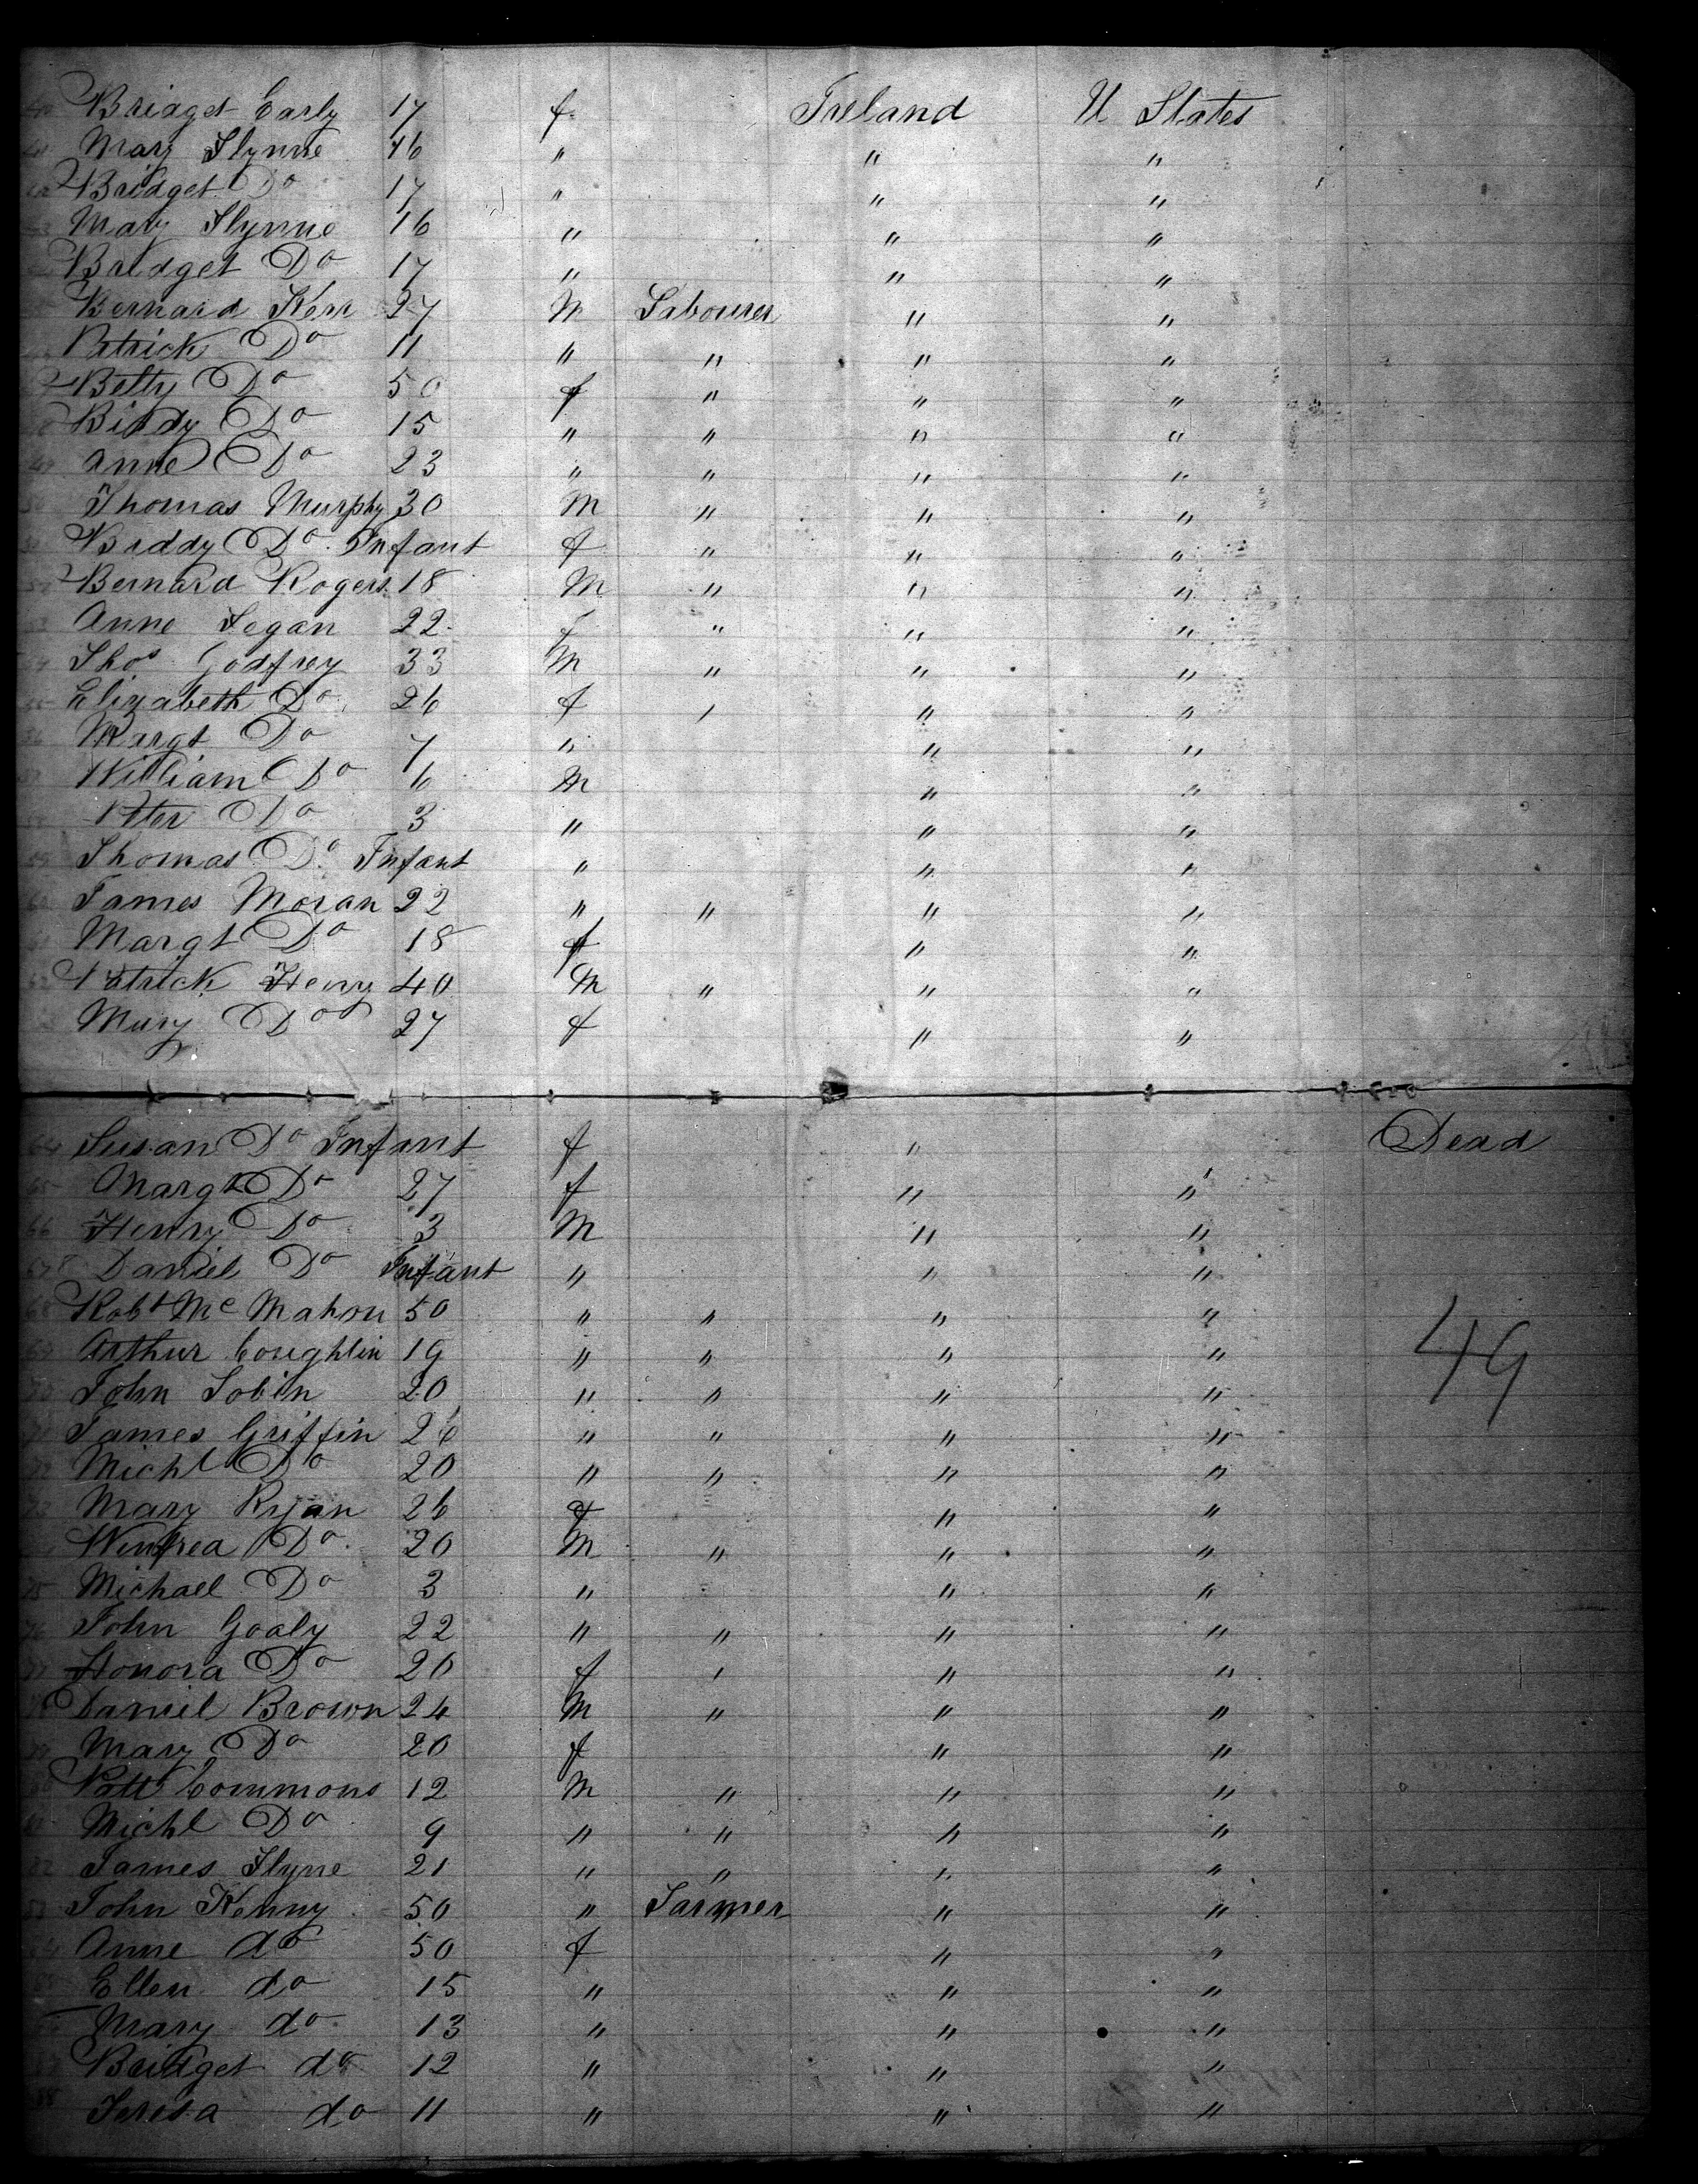 Bridget Early 17 f Ireland U States
Mary Flynne 16 " " "
Bridget Do 17 " " "
Mary Flynne 16 " " "
Bridget Do 17 " " "
Bernard Kerr 27 M Labourer " "
Patrick Do 11 " " " "
Betty Do 50 f " " "
Biddy Do 15 " " " "
Anne Do 23 " " " "
Thomas Murphy 30 M " " "
Biddy Do Infant f " " "
Bernard Rogers 18 M " " "
Anne 22 f " " "
Thos Godfrey 33 M " " "
Elizabeth Do 26 f " " "
Margt Do 7 " " "
William Do 6 M " "
Peter Do 3 " " "
Thomas Do Infant " " "
James Moran 22 " " " "
Margt Do 18 f " "
Patrick Henry 40 M " " "
Mary Do 27 f " "
64 Susan Do Infant f " Dead
65 Margt Do 27 f " "
66 Henry Do 3 M " "
67 Daniel Do Infant " " "
68 Robt McMahon 50 " " " "
69 Arthur Coughlin 19 " " " "
49
70 John Tobin 20 " " " "
71 James Griffin 26 " " " "
72 Michl Do 20 " " " "
73 Mary Ryan 26 f " "
Do 20 M " " "
75 Michael Do 3 " " "
76 John Goaly 22 " " " "
77 Honora Do 20 f " " "
Daniel Brown 24 M " " "
Mary Do 20 f " "
Patt Commons 12 M " " "
Michl Do 9 " " " "
82 James Flyne 21 " " " "
83 John Kenny 50 " Farmer " "
84 Anne do 50 f " "
Ellen do 15 " " "
Mary do 13 " " "
Bridget do 12 " " "
88 Teresa do 11 " " "